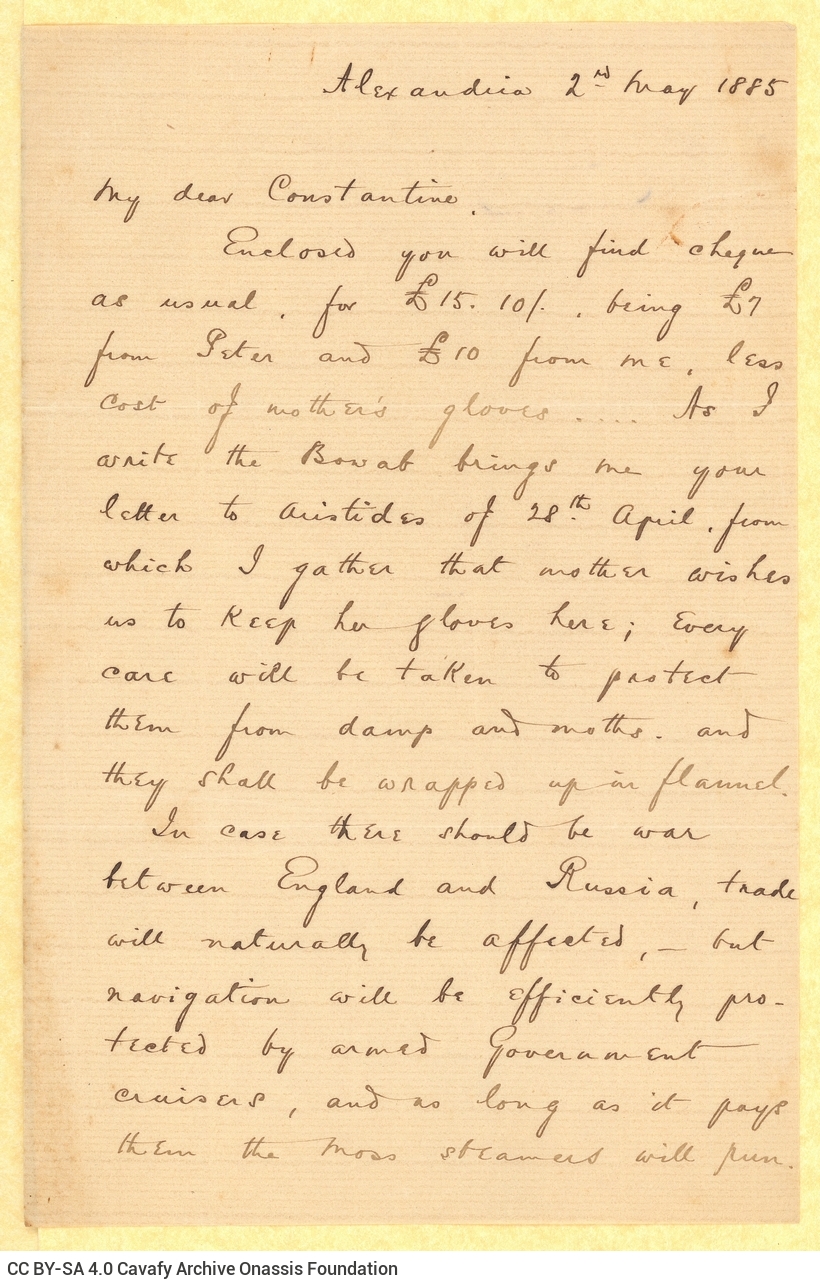 Alexandria 2nd May 1885
My dear Constantine,
Enclosed you will find cheque
as usual, for £15. 10/. , being £7
from Peter and £10 from me, less
cost of mother's gloves .... As I
write the Bowab brings me your
letter to Aristides of 28th April, from
which I gather that mother wishes
us to keep her gloves here; Every
care will be taken to protect
them from damp and moths. and
they shall be wrapped up in flannel.
In case there should be war
between England and Russia, trade
will naturally be affected, — but
navigation will be efficiently pro-
tected by armed Government
cruisers, and as long as it pays
them the Moss steamers will run.
CC BY-SA 4.0 Cavafy Archive Onassis Foundation